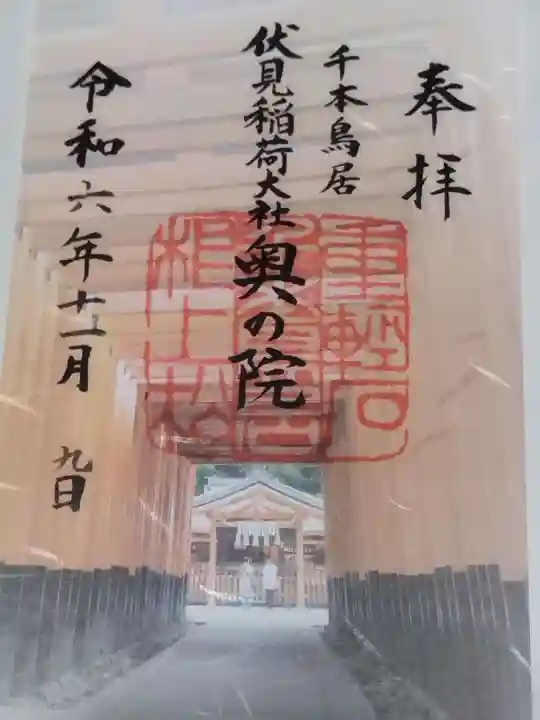 奉拝
千本鳥居
伏見稲荷大社
奥の院
令和六年十一月九日
重軽石
根上松